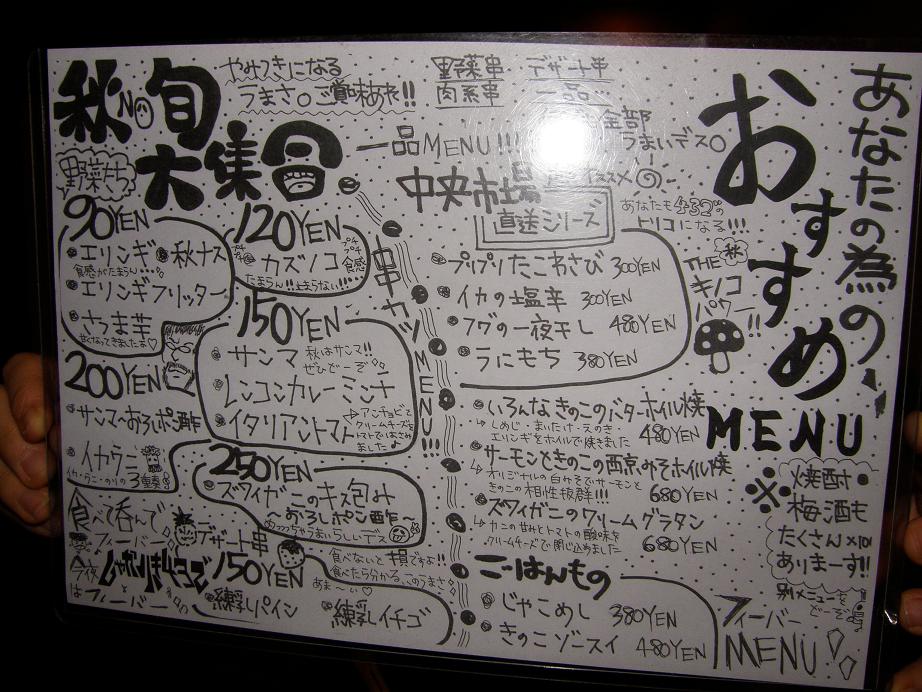 あなたの為の
おすすめ
MENU
秋NO旬
大集合
やみつきになる
うまさ。ご賞味あれ!!
野菜串
デザート串
肉系串
一品…
全部
うまいデス。
一品MENU!!!
中央市場
直送シリーズ
あなたも432"の
トリコになる!!!
プリプリたこわさび 300YEN
イカの塩辛 300YEN
フグの一夜干し 480YEN
うにもち 380YEN
THE秋
キノコ
パワー!!
いろんなきのこのバターホイル焼
→しめじ・まいたけ・えのき・
エリンギをホイルで焼きました 480YEN
サーモンときのこの西京みそホイル焼
→オリジナルの白みそでサーモンと
きのこの相性抜群!!! 680YEN
ズワイガニのクリームグラタン
→カニの甘みとトマトの酸味を
クリームチーズで閉じ込めました 680YEN
ごはんもの
じゃこめし 380YEN
きのこゾースイ 480YEN
※焼酎・
梅酒も
たくさん
ありまーす!!
別メニューを
どーぞ
フィーバー
MENU!
串カツMENU!!!
野菜たち
90YEN
エリンギ
食感がたまらん…
秋ナス
エリンギフリッター
さつま芋
甘くなってきましたよ♡
120YEN
カズノコ
プチプチ食感
たまらん!!止まらない!!
150YEN
サンマ 秋はサンマ!!
ぜひどーぞ
レンコンカレーミンチ
イタリアントマト
→アンチョビと
クリームチーズを
トマトではさみ
ました
200YEN
サンマ〜おろポン酢〜
イカウニ
イカ・ウニ・のりの3重奏
250YEN
ズワイガニのキス包み
〜おろしポン酢〜
めっっちゃうまいらしいデス
食べて呑んで
フィーバー
今夜
はフィーバー
デザート串
150YEN
食べないと損ですよ!!
食べたら分かるこのうまさ
あま〜い♡
練乳パイン
練乳イチゴ